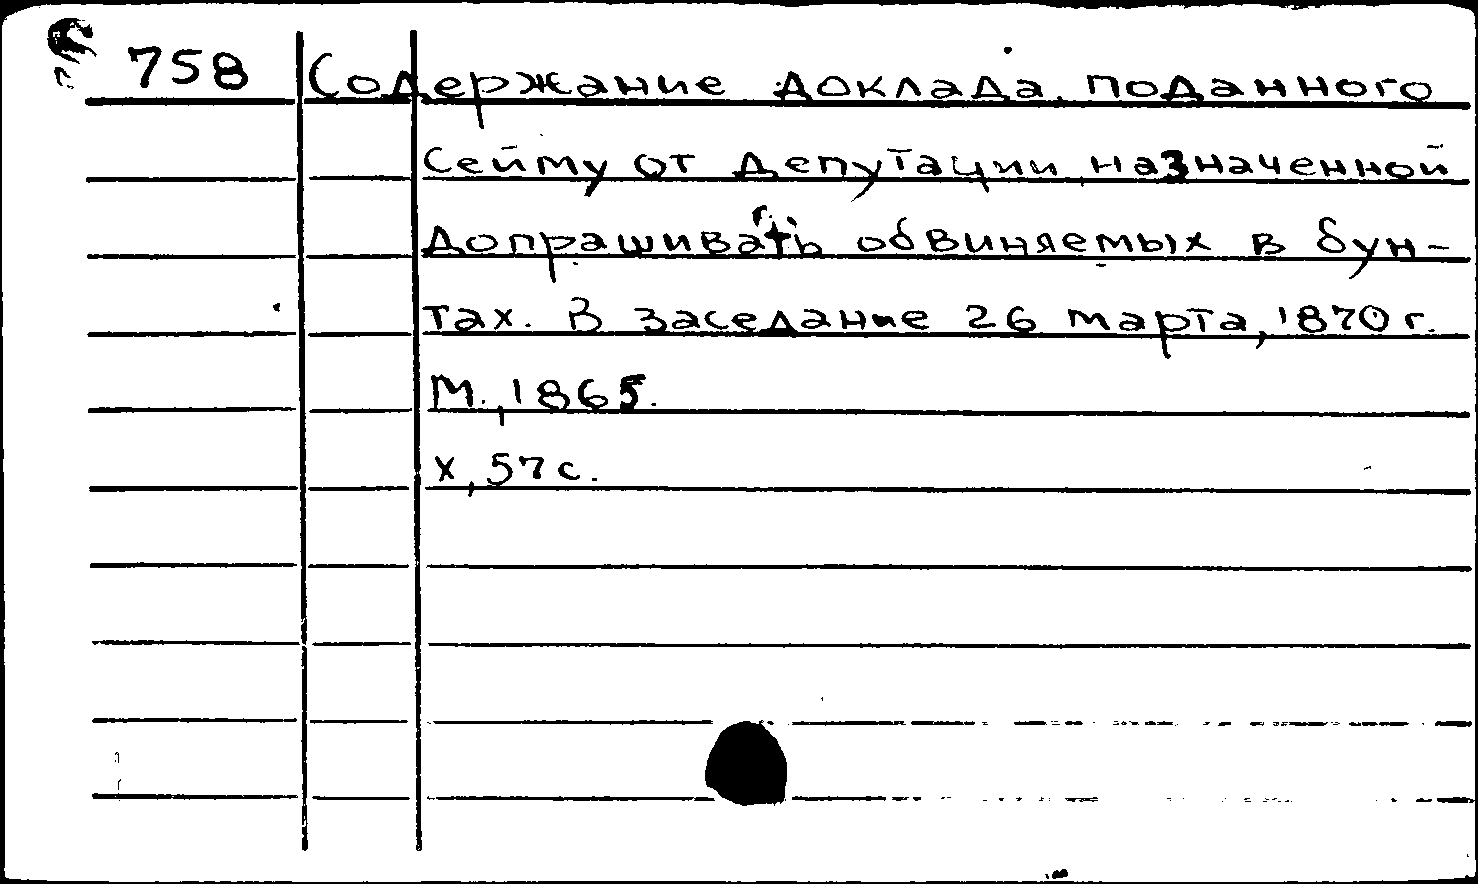 758 Содержание доклада, поданного
Сейму от депутации, назначенной
допрашивать обвиняемых в бун-
тах. В заседание 26 марта, 1870 г.
М., 1865.
X, 57 с.